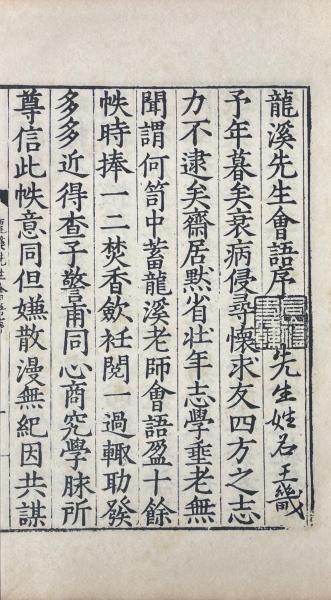 龍溪先生會語序
先生姓名王畿
予年暮矣衰病侵尋懷求友四方之志
力不逮矣齋居默省壯年志學垂老無
聞謂何笥中蓄龍溪老師會語盈十餘
帙時捧一二焚香歛衽閱一過輒助發
多多近得查子警甫同心商究學脉所
尊信此帙意同但嫌散漫無紀因共謀